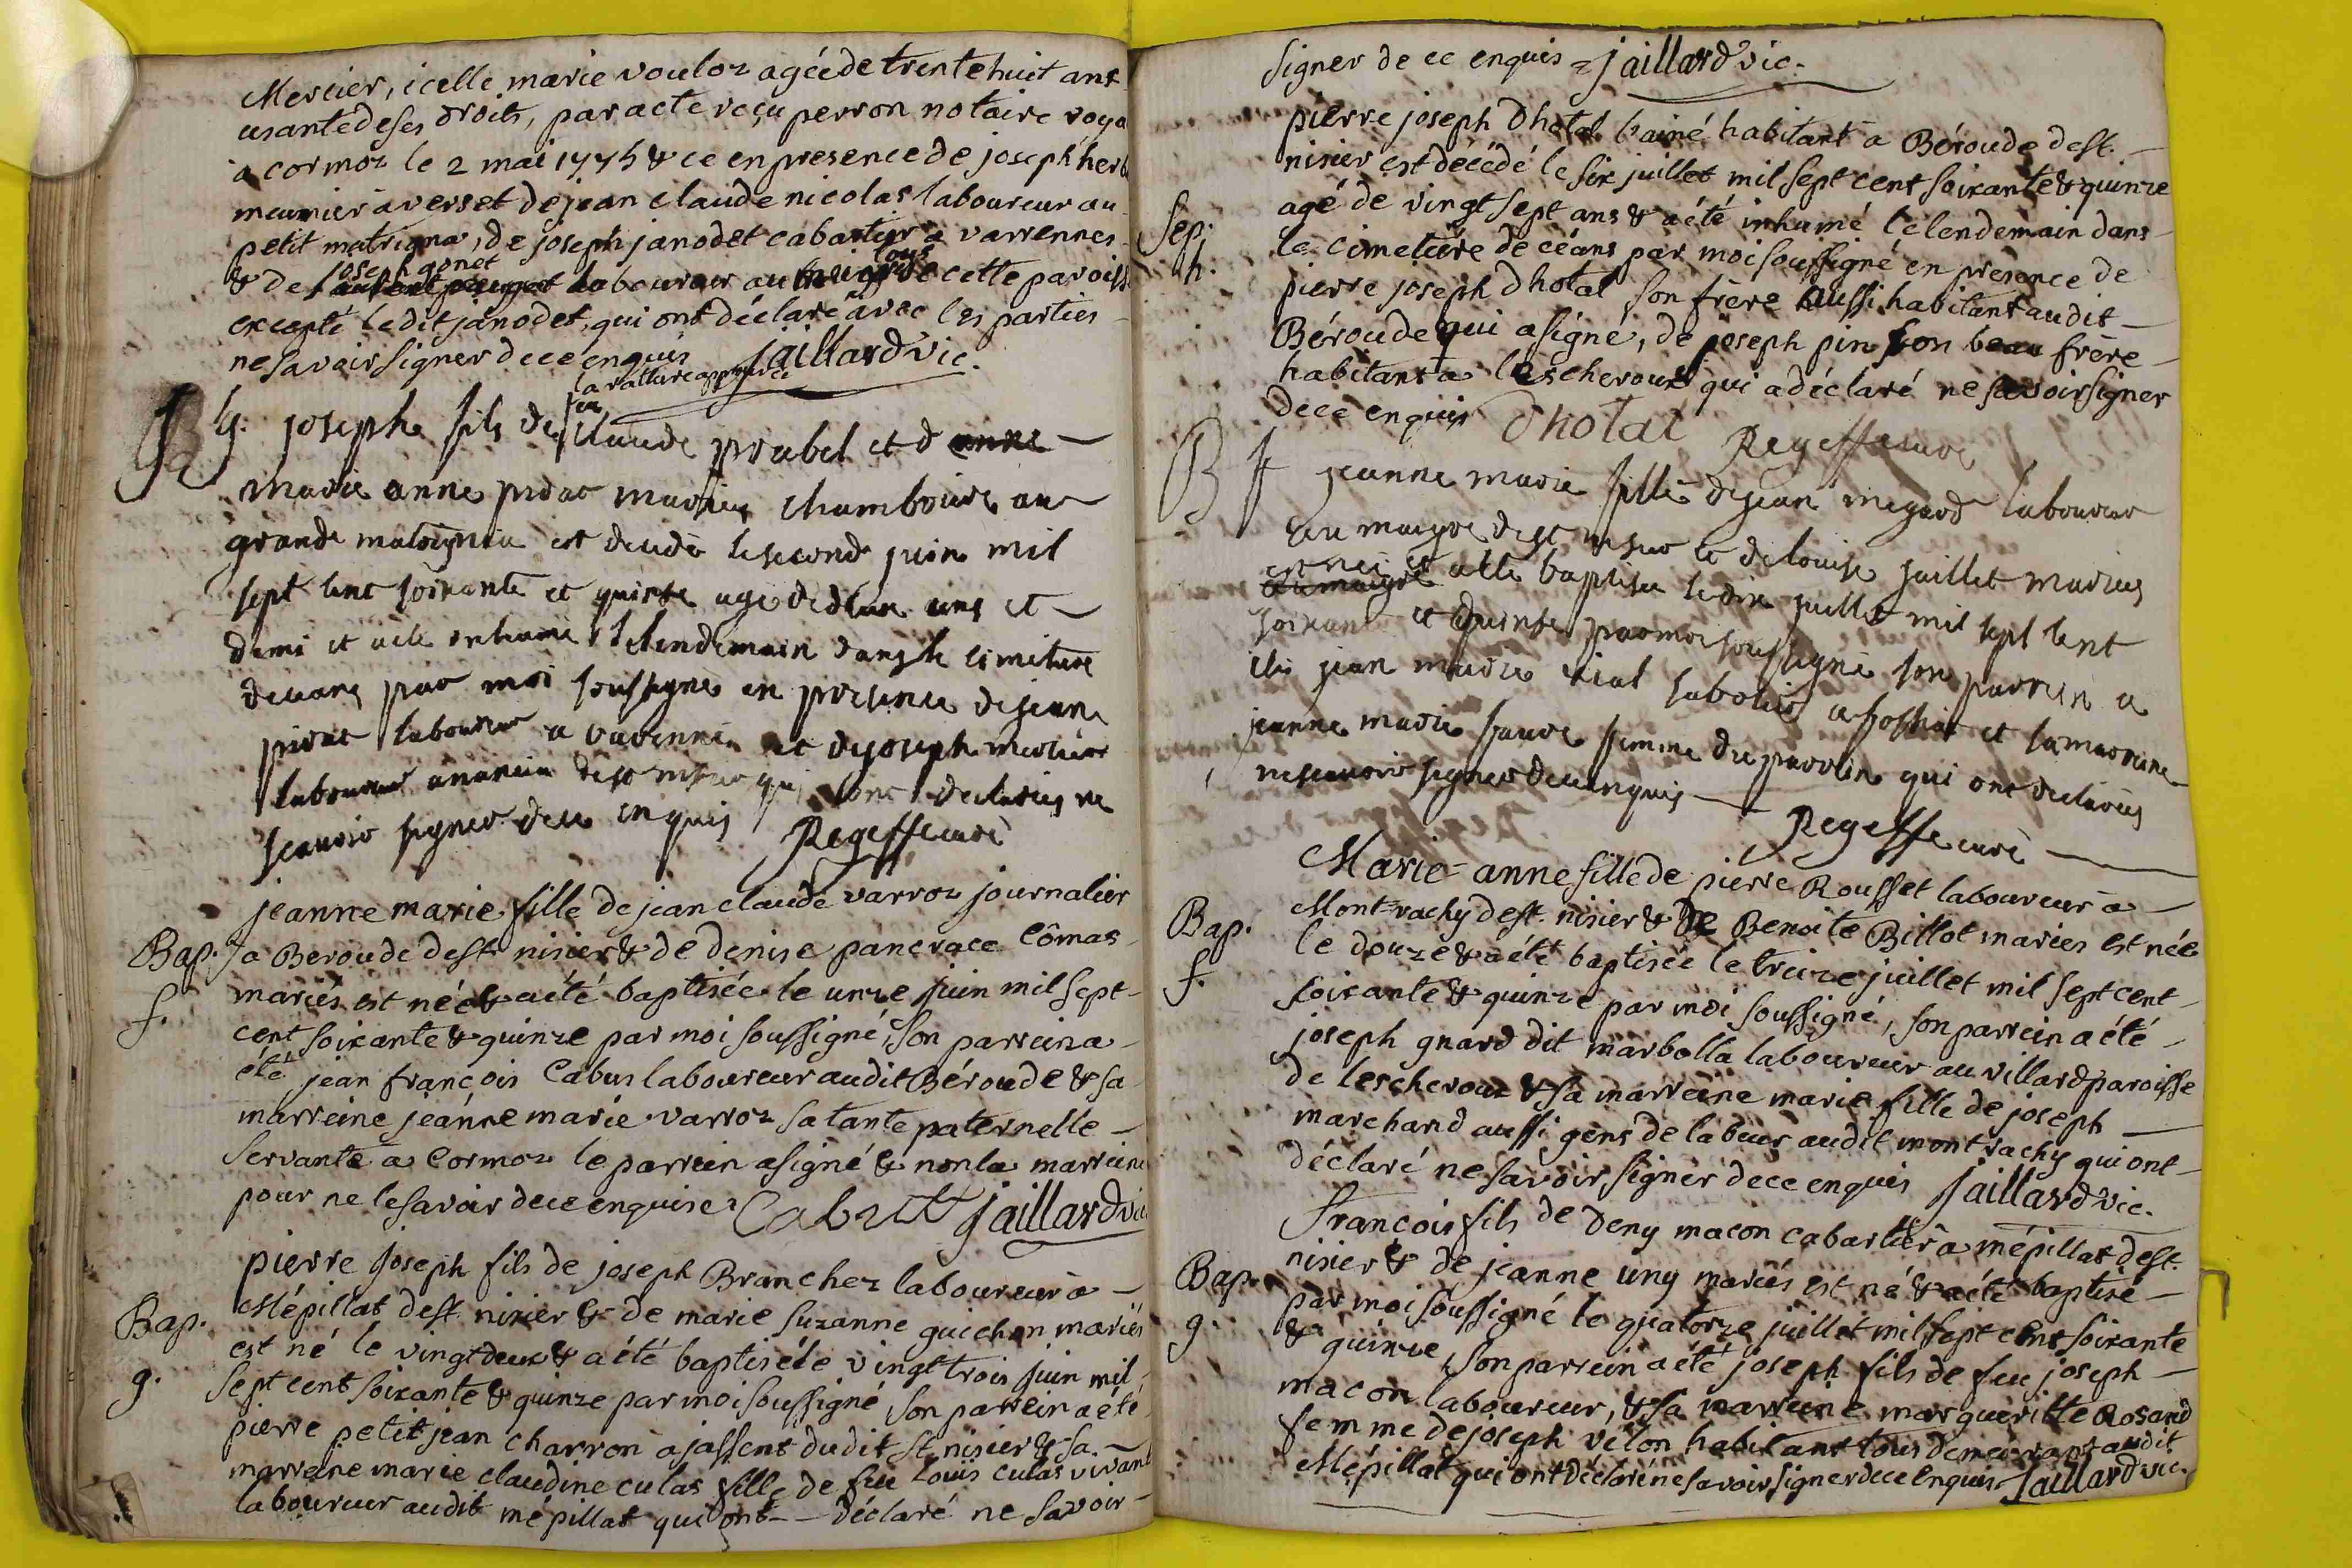 Mercier, icelle marie vouloz agée de trente huit ans
usante de ses droits, par acte reçu perron notaire roya
à cormoz le 2 mai 1775 & ce en presence de joseph
meunier à verset de jean claude nicolas laboureur au
petit matrigna, de joseph janodet cabartier à varrennes
joseph gonet tous
& de laboureur au de cette paroisse
excepté ledit janodet, qui ont déclaré avec les parties
ne savoir signer de ce enquis jaillard vic.
la ratture approuvée
feu
g. joseph fils de claude probel et d anne
marie anne pidat mariés au
grand matrignia est decedé le second juin mil
sept cent soixante et quinse agé de deux ans et
demi et a été inhumé le lendemain dans le cimetiere
de ceans par moi soussigné en presence de jean
pirat laboureur a varenne et de joseph mercier
laboureur de st nisier qui ont declarés ne
scavoir signer de ce enquis Regeffe curé
jeanne marie fille de jean claude varroz journalier
Bap. a Beroude de st. nisier & de denise pancrace Cômas
f. mariés est née & a été baptisée le unze juin mil sept
cent soixante & quinze par moi soussigné, son parrein a
été jean françois Cabus laboureur audit Béroude & sa
marreine jeanne marie varroz sa tante paternelle
servante à Cormoz le parrein a signé & non la marreine
pour ne le savoir de ce enquise Cabut jaillard vic
pierre joseph fils de joseph Branchez laboureur à
Bap. Mépillat de st. nisier & de marie suzanne guichon mariés
g. est né le vingt deux & a été baptisé le vingt trois juin mil
sept cent soixante & quinze par moi soussigné son parrein a été
pierre petit jean charron a jassent dudit st. nisier & sa
marreine marie claudine culas fille de feu Louis culas vivant
laboureur audit mépillat qui ont déclaré ne savoir
signer de ce enquis jaillard vic.
pierre joseph Dhotal l'ainé habitant à Béroude de st.
nisier est décédé le six juillet mil sept cent soixante & quinze
Sep. agé de vingt sept ans & a été inhumé le lendemain dans
h. le cimetière de céans par moi soussigné en presence de
pierre joseph Dhotal son frère aussi habitant audit
Béroude qui a signé, de joseph pin son beau frère
habitant à Lescheroux qui a déclaré ne savoir signer
de ce enquis Dhotal Regeffe curé
B f jeanne marie fille de jean megard laboureur
au maigre de st nisier et de louise juillet mariés
est neé et
au maigre a été baptisée le dix juillet mil sept cent
soixante et quinse par moi soussigné son parrein a
été jean marie vial sabotier a foissiat et sa marreine
jeanne marie favre femme du parrein qui ont declarés
ne scavoir signer de ce enquis
Regeffe curé
Marie-anne fille de pierre Rousset laboureur à
Bap. Mont-rachy de st. nisier & de Benoite Billot mariés est née
f. le douze & a été baptisée le treize juillet mil sept cent
soixante & quinze par moi soussigné, son parrein a été
joseph gnard dit marbolla laboureur au villard paroisse
de lescheroux & sa marreine marie fille de joseph
marchand aussi gens de labeur audit mont rachy qui ont
déclaré ne savoir signer de ce enquis jaillard vic.
François fils de Deny macon cabartier à mépillat de st.
Bap. nisier & de jeanne uny mariés est né & a été baptisé
g. par moi soussigné le quatorze juillet mil sept cent soixante
& quinze, son parrein a été joseph fils de feu joseph
macon laboureur, & sa marreine margueritte Rosand
femme de joseph vélon habitant tous demeurant audit
Mépillat qui ont déclaré ne savoir signer de ce enquis jaillard vic.